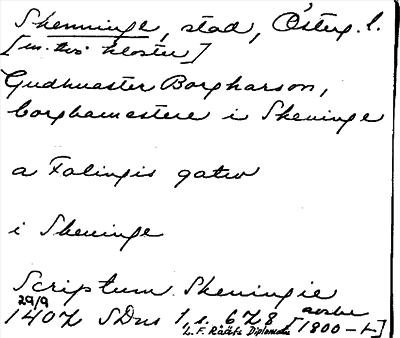 Skenninge, stad, Österg. l.
[m. två kloster]
Gudhnaster Borgharson,
borghamestere i Skeninge
a Falingis gatw
i Skeninge
Scriptum Skeningie
29/9
1407 SDns 1, s. 678 [avskr
L. F. Rääfs Diplomata 1800-t.]